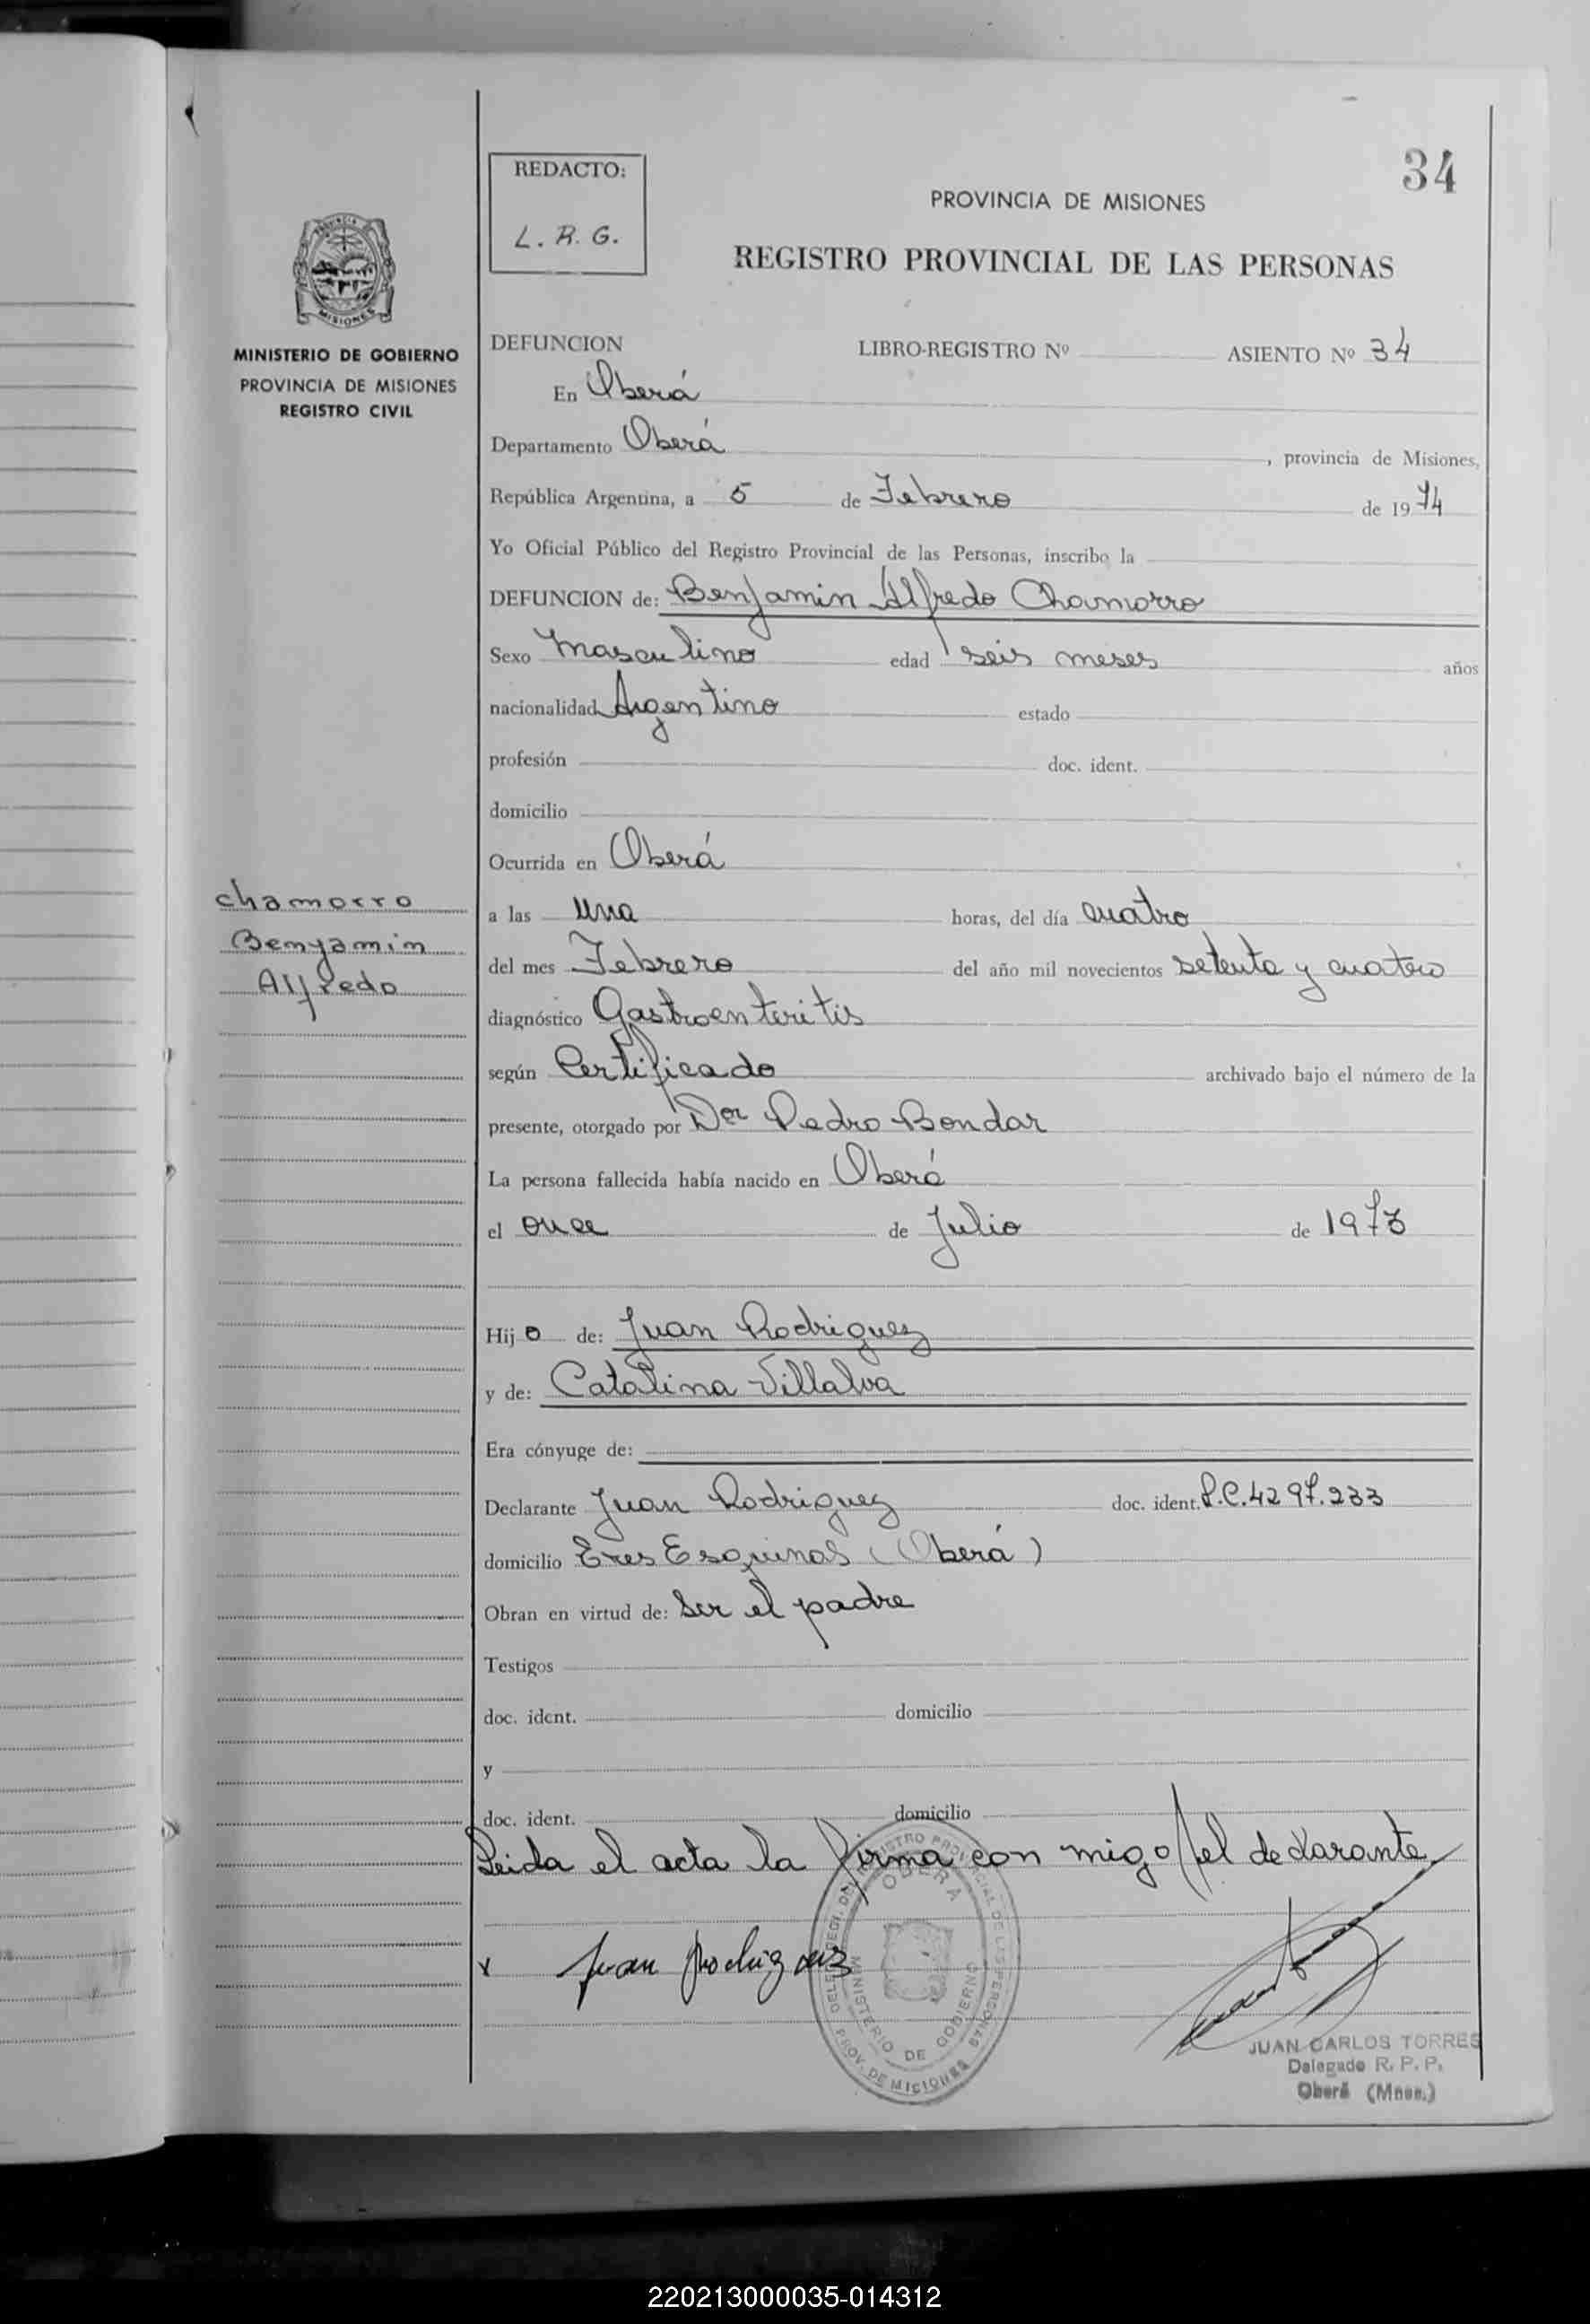 34
REDACTO:
L. R. G.
PROVINCIA DE MISIONES
REGISTRO PROVINCIAL DE LAS PERSONAS
MISIONES
MINISTERIO DE GOBIERNO
PROVINCIA DE MISIONES
REGISTRO CIVIL
DEFUNCION LIBRO-REGISTRO Nº ASIENTO Nº 34
En Oberá
Departamento Oberá , provincia de Misiones,
República Argentina, a 5 de Febrero de 1974
Yo Oficial Público del Registro Provincial de las Personas, inscribo la
DEFUNCION de: Benjamin Alfredo Chamorro
Sexo Masculino edad seis meses años
nacionalidad Argentino estado
profesión doc. ident.
domicilio
Ocurrida en Oberá
chamorro
Benyamin
Alfredo
a las una horas, del día cuatro
del mes Febrero del año mil novecientos setenta y cuatro
diagnóstico Gastroenteritis
según Certificado archivado bajo el número de la
presente, otorgado por Dor Pedro Bondar
La persona fallecida había nacido en Oberá
el once de Julio de 1973
Hijo de: Juan Rodriguez
y de: Catalina Villalva
Era cónyuge de:
Declarante Juan Rodriguez doc. ident. P.C.4297.233
domicilio Tres Esquinas (Oberá)
Obran en virtud de: Ser el padre
Testigos
doc. ident. domicilio
y
doc. ident. domicilio
Leida el acta la firma con migo el declarante
x Juan Rodriguez
OBERA
MINISTERIO DE GOBIERNO
PROV. DE MISIONES
JUAN CARLOS TORRES
Delegado R. P. P.
Oberá (Mnes.)
220213000035-014312